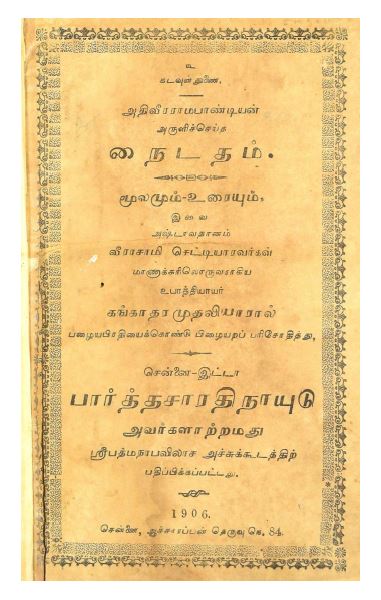 உ
கடவுள் துணை.
அதிவீரராமபாண்டியன்
அருளிச்செய்த
நைடதம்.
மூலமும்-உரையும்,
இவை
அஷ்டாவதானம்
வீராசாமி செட்டியாரவர்கள்
மாணாக்கரிலொருவராகிய
உபாத்தியாயர்
கங்காதரமுதலியாரால்
பழையபிரதியைக்கொண்டு பிழையறப் பரிசோதித்து,
சென்னை-இட்டா
பார்த்தசாரதிநாயுடு
அவர்களாற்றமது
ஸ்ரீபத்மநாபவிலாச அச்சுக்கூடத்திற்
பதிப்பிக்கப்பட்டது.
1906.
சென்னை, ஆச்சாரப்பன் தெருவு கெ. 84.